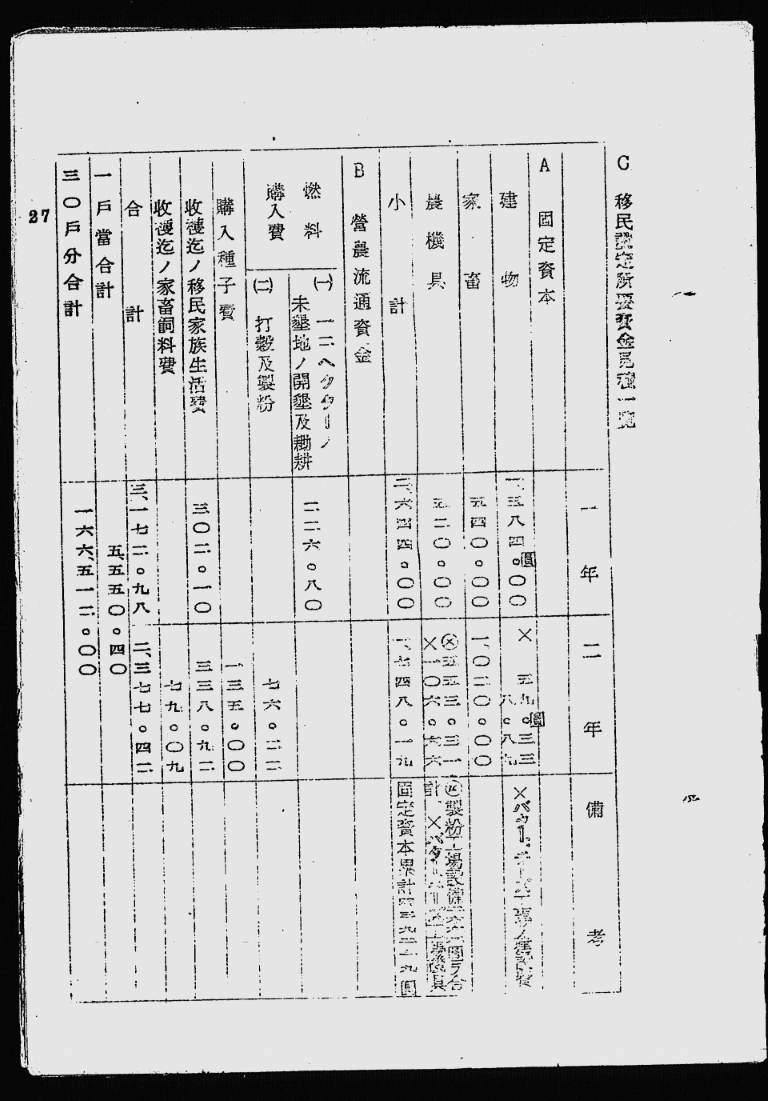 C 移民設定所要資金見積一覽
一年 二年 備考
A 固定資本
建物 一、五八四。〇〇圓 × 五九。三三圓
八。八九
×バター、チーズ工場ノ建築費
家畜 五四〇。〇〇 一、〇二〇。〇〇
農機具 五二〇。〇〇 五五三。三一
×一〇六。六六
製粉工場設備
小計 二、六四四。〇〇 一、七四八。一九 固定資本累計四三九二・一九圓
B 營農流通資金
燃料購入費
(一) 一二ヘクタールノ
未墾地ノ開墾及耡耕 二二六。八〇
(二) 打穀及製粉 七六。二二
購入種子費 一三五。〇〇
收穫迄ノ移民家族生活費 三〇二。一〇 三三八。九二
收穫迄ノ家畜飼料費 七九。〇九
合計 三、一七二。九八 二、三七七。四二
一戶當合計 五、五五〇。四〇
三〇戶分合計 一六六、五一二。〇〇
27